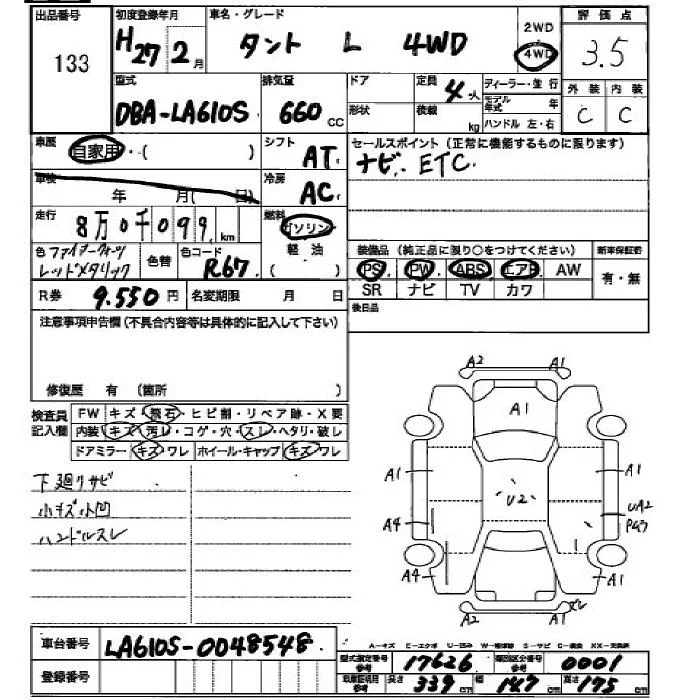 出品番号 初度登録年月 車名・グレード 2WD 4WD 評価点
133 H27 2月 タント L 4WD 3.5
型式 排気量 ドア 定員 4人 ディーラー・並行 外装 内装
DBA-LA610S 660cc 形状 積載 kg モデル年式 年 C C
ハンドル 左・右
車歴 自家用・( ) シフト AT セールスポイント(正常に機能するものに限ります)
ナビ、ETC
車検 年 月( 日) 冷房 AC
走行 8万0千099km 燃料 ガソリン 軽油
色 ファイアークォーツレッドメタリック 色替 色コード R67 装備品(純正品に限り○をつけてください) 新車保証書
PS PW ABS エアB AW 有・無
R券 9.550円 名変期限 月 日 SR ナビ TV カワ
後日品
注意事項申告欄(不具合内容等は具体的に記入して下さい)
修復歴 有 (箇所 )
検査員記入欄 FW キズ・飛石・ヒビ割・リペア跡・X要
内装 キズ・汚レ・コゲ・穴・スレ・ヘタリ・破レ
ドアミラー キズ・ワレ ホイール・キャップ キズ・ワレ
下廻りサビ
小キズ小凹
ハンドルスレ
A2 A1
A1
A1 A1
U2
A4 UA2
A4 A1
A2 A1 スレ
車台番号 LA610S-0048548
A-キズ E-エクボ U-凹み W-補修跡 S-サビ C-腐食 XX-交換済
登録番号 型式指定番号 参考 17626 類別区分番号 参考 0001
車庫証明用 参考 長さ 339cm 幅 147cm 高さ 175cm